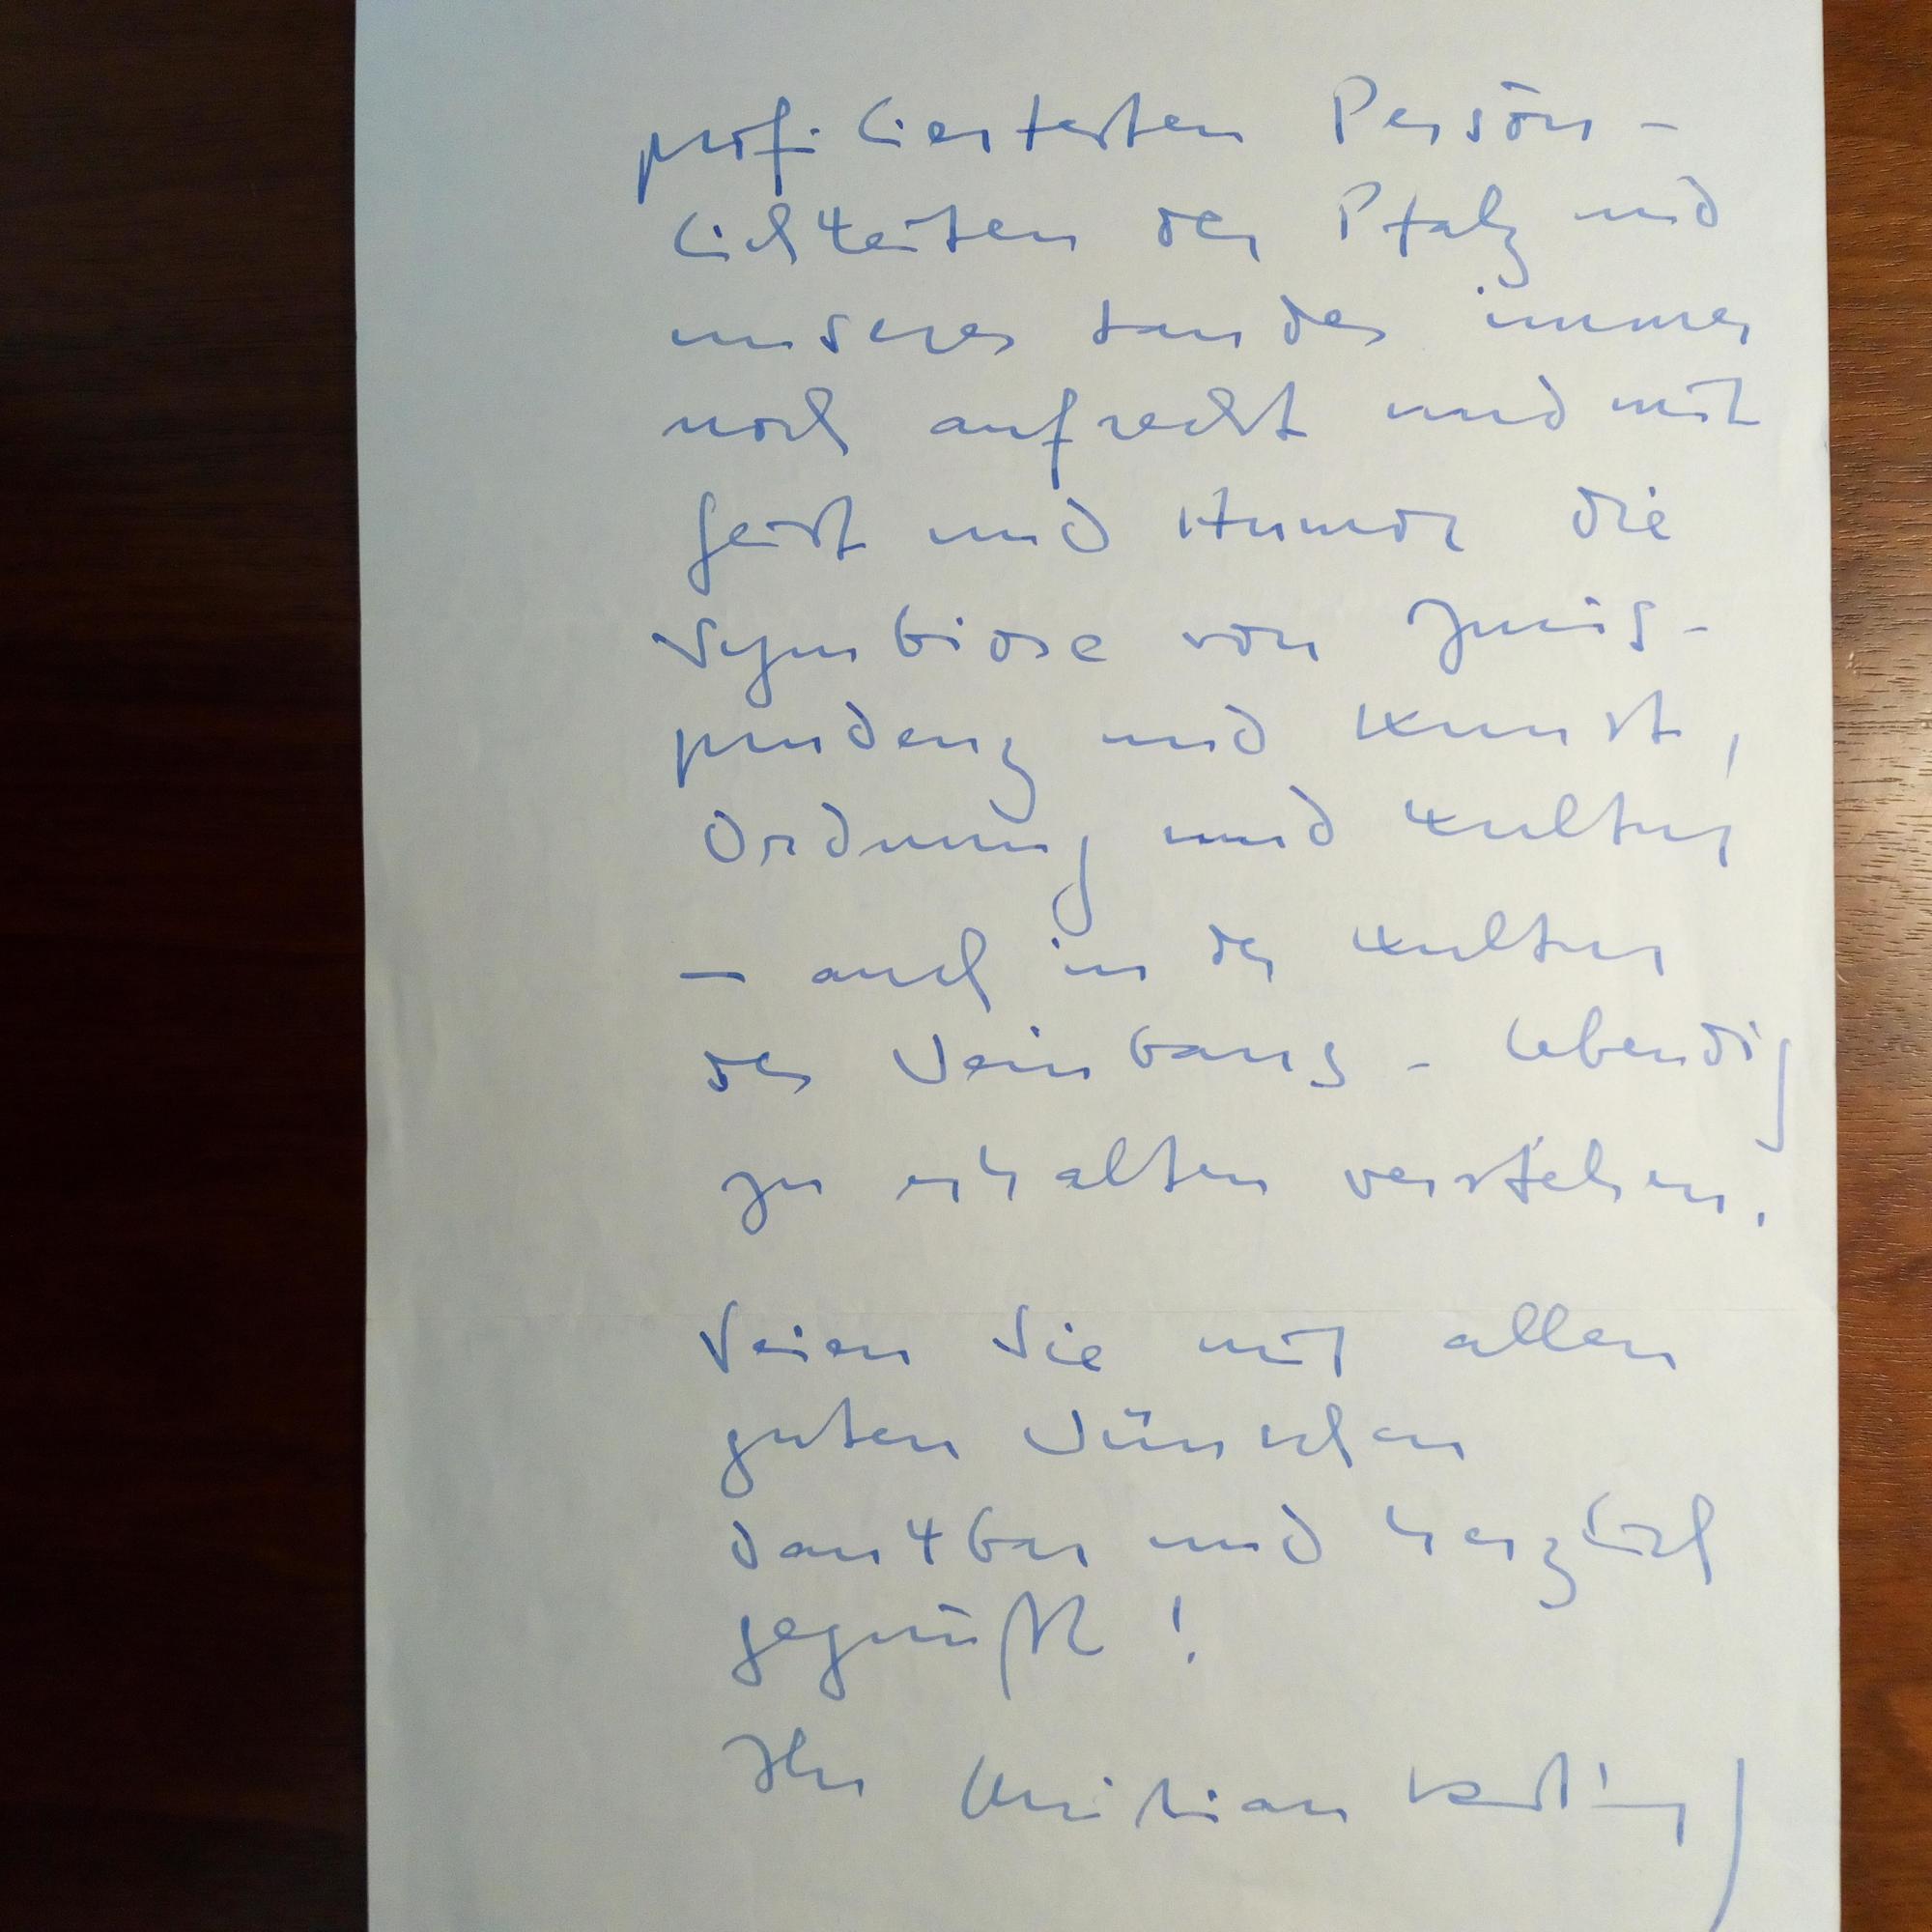 profiliertesten Persön-
lichkeiten der Pfalz und
unseres Landes immer
noch aufrecht und mit
Geist und Humor die
Symbiose von Juris-
prudenz und Kunst,
Ordnung und Kultur
– auch in der Kultur
des Weinbaus – lebendig
zu erhalten verstehen.
Seien Sie mit allen
guten Wünschen
dankbar und herzlich
gegrüßt!
Ihr Christian